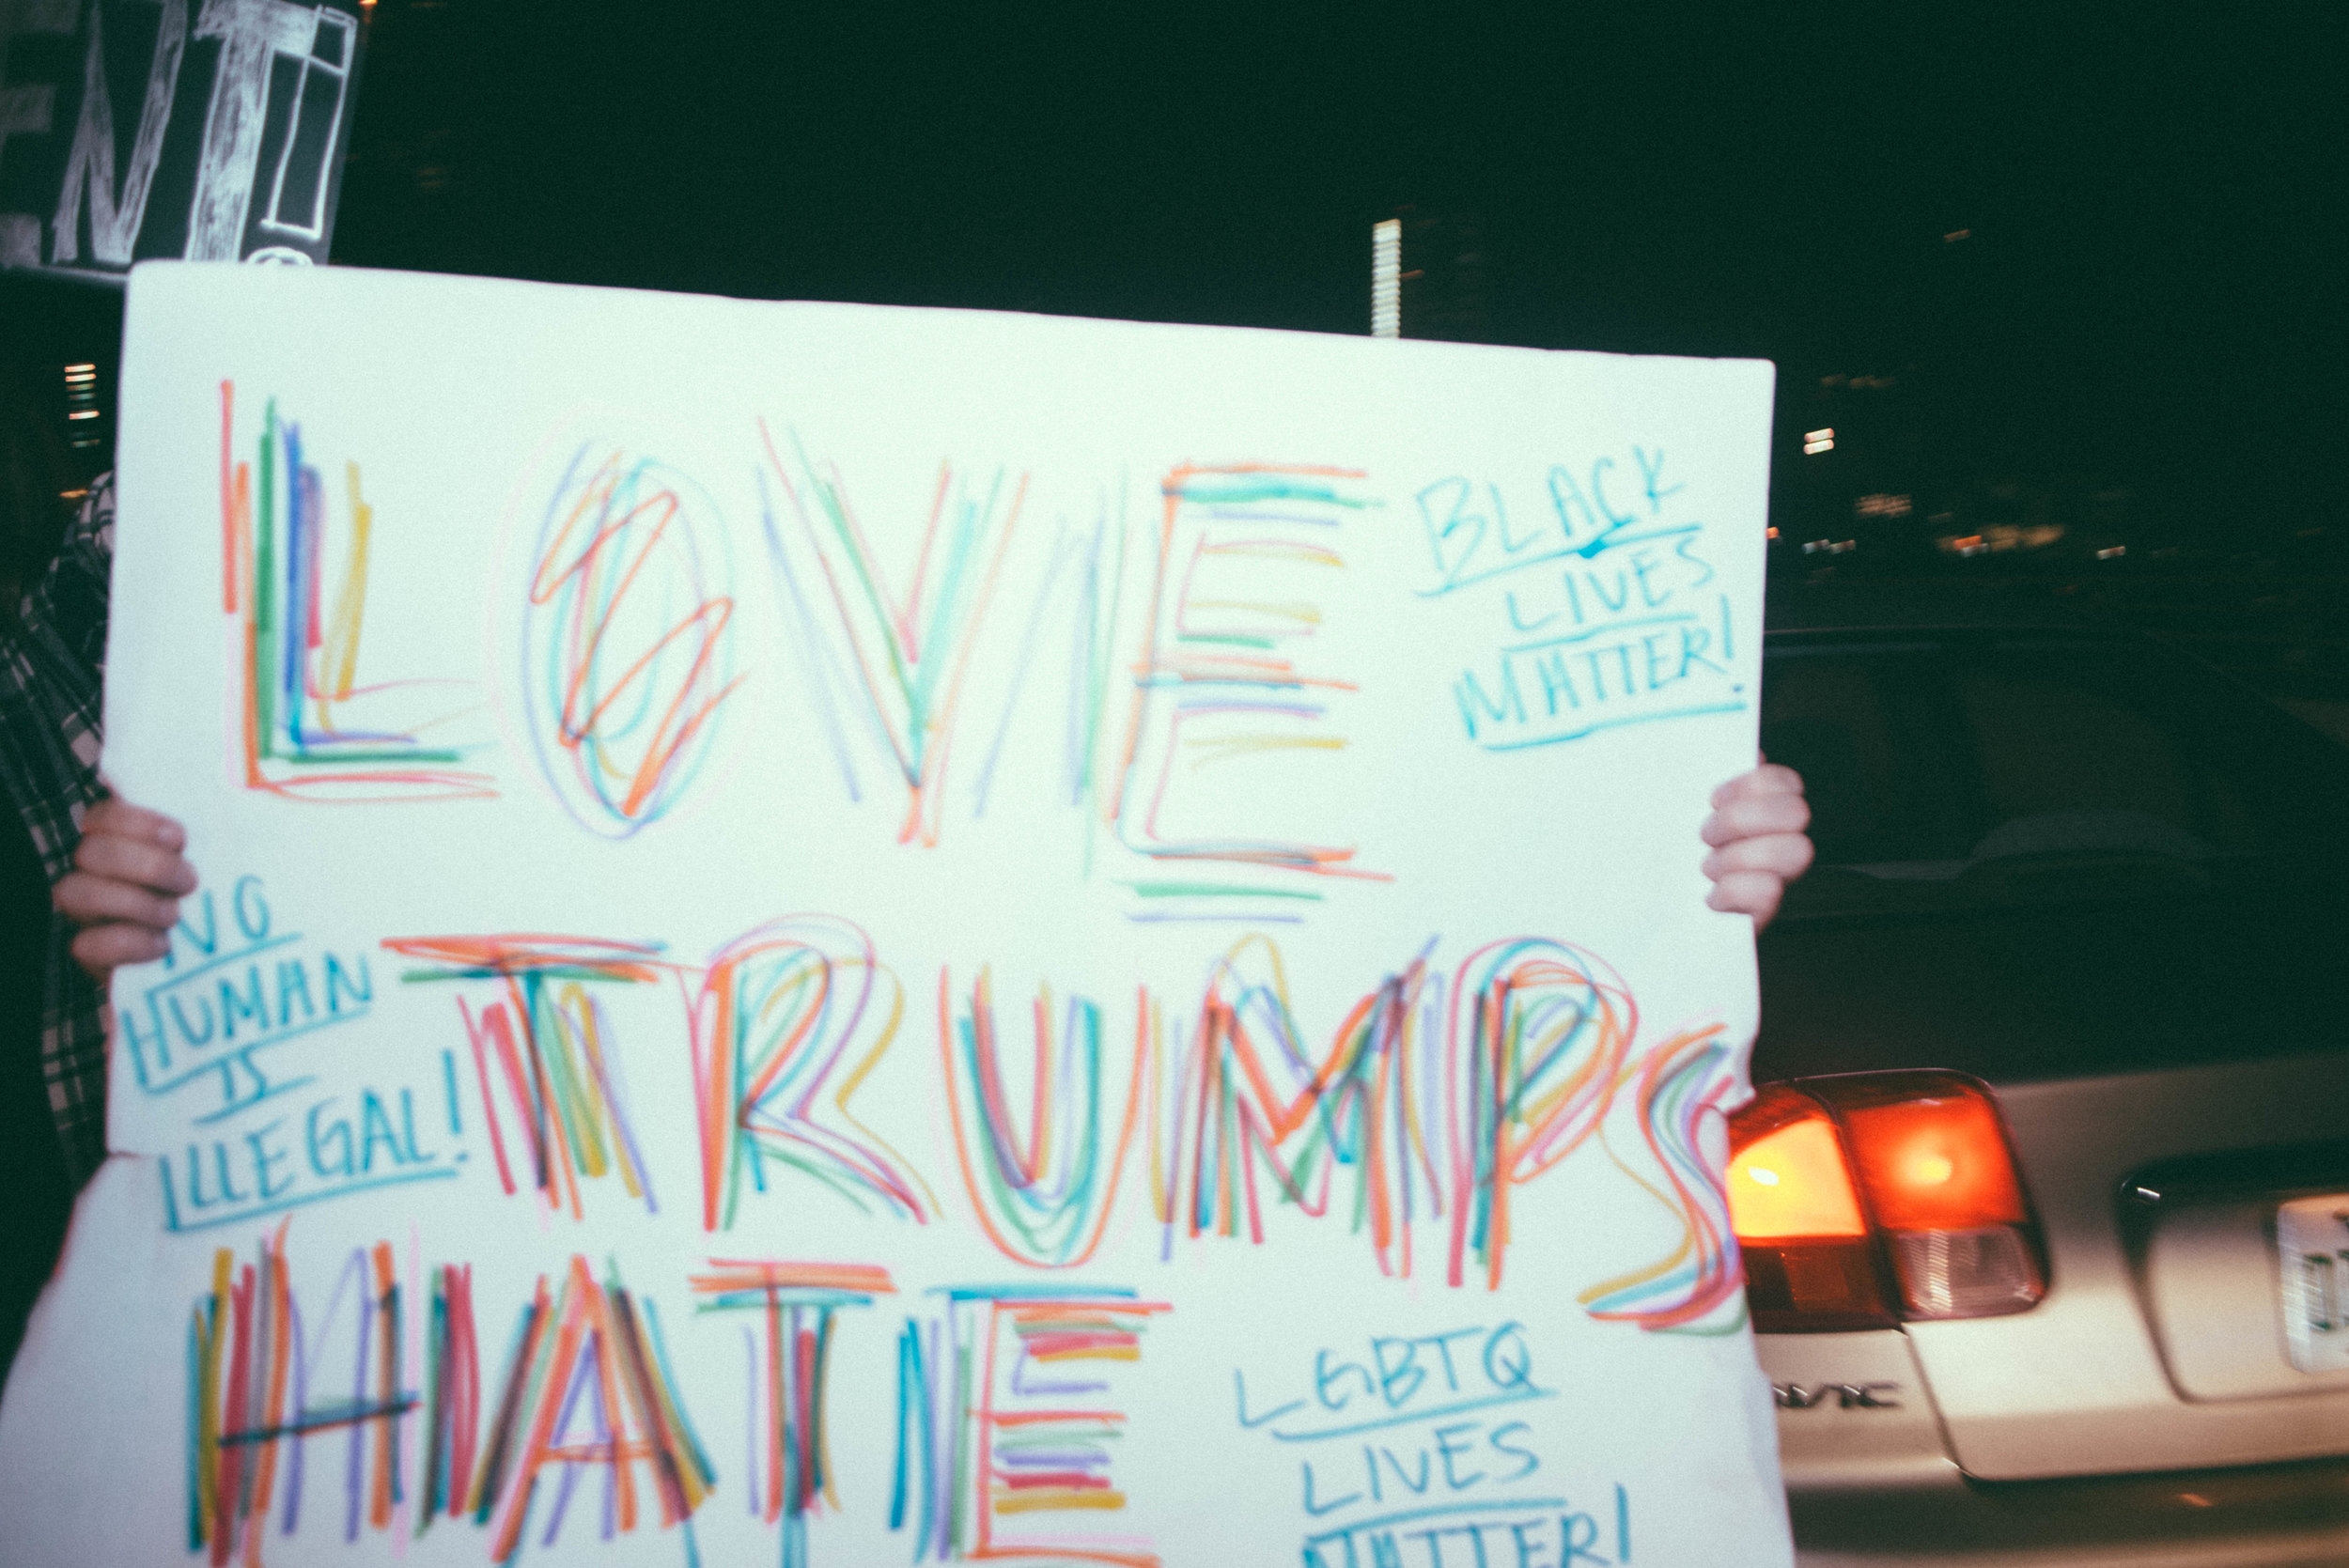 ENT!
LOVE
BLACK
LIVES
MATTER!
NO
HUMAN
IS
ILLEGAL!
TRUMPS
HATE
LGBTQ
LIVES
MATTER!